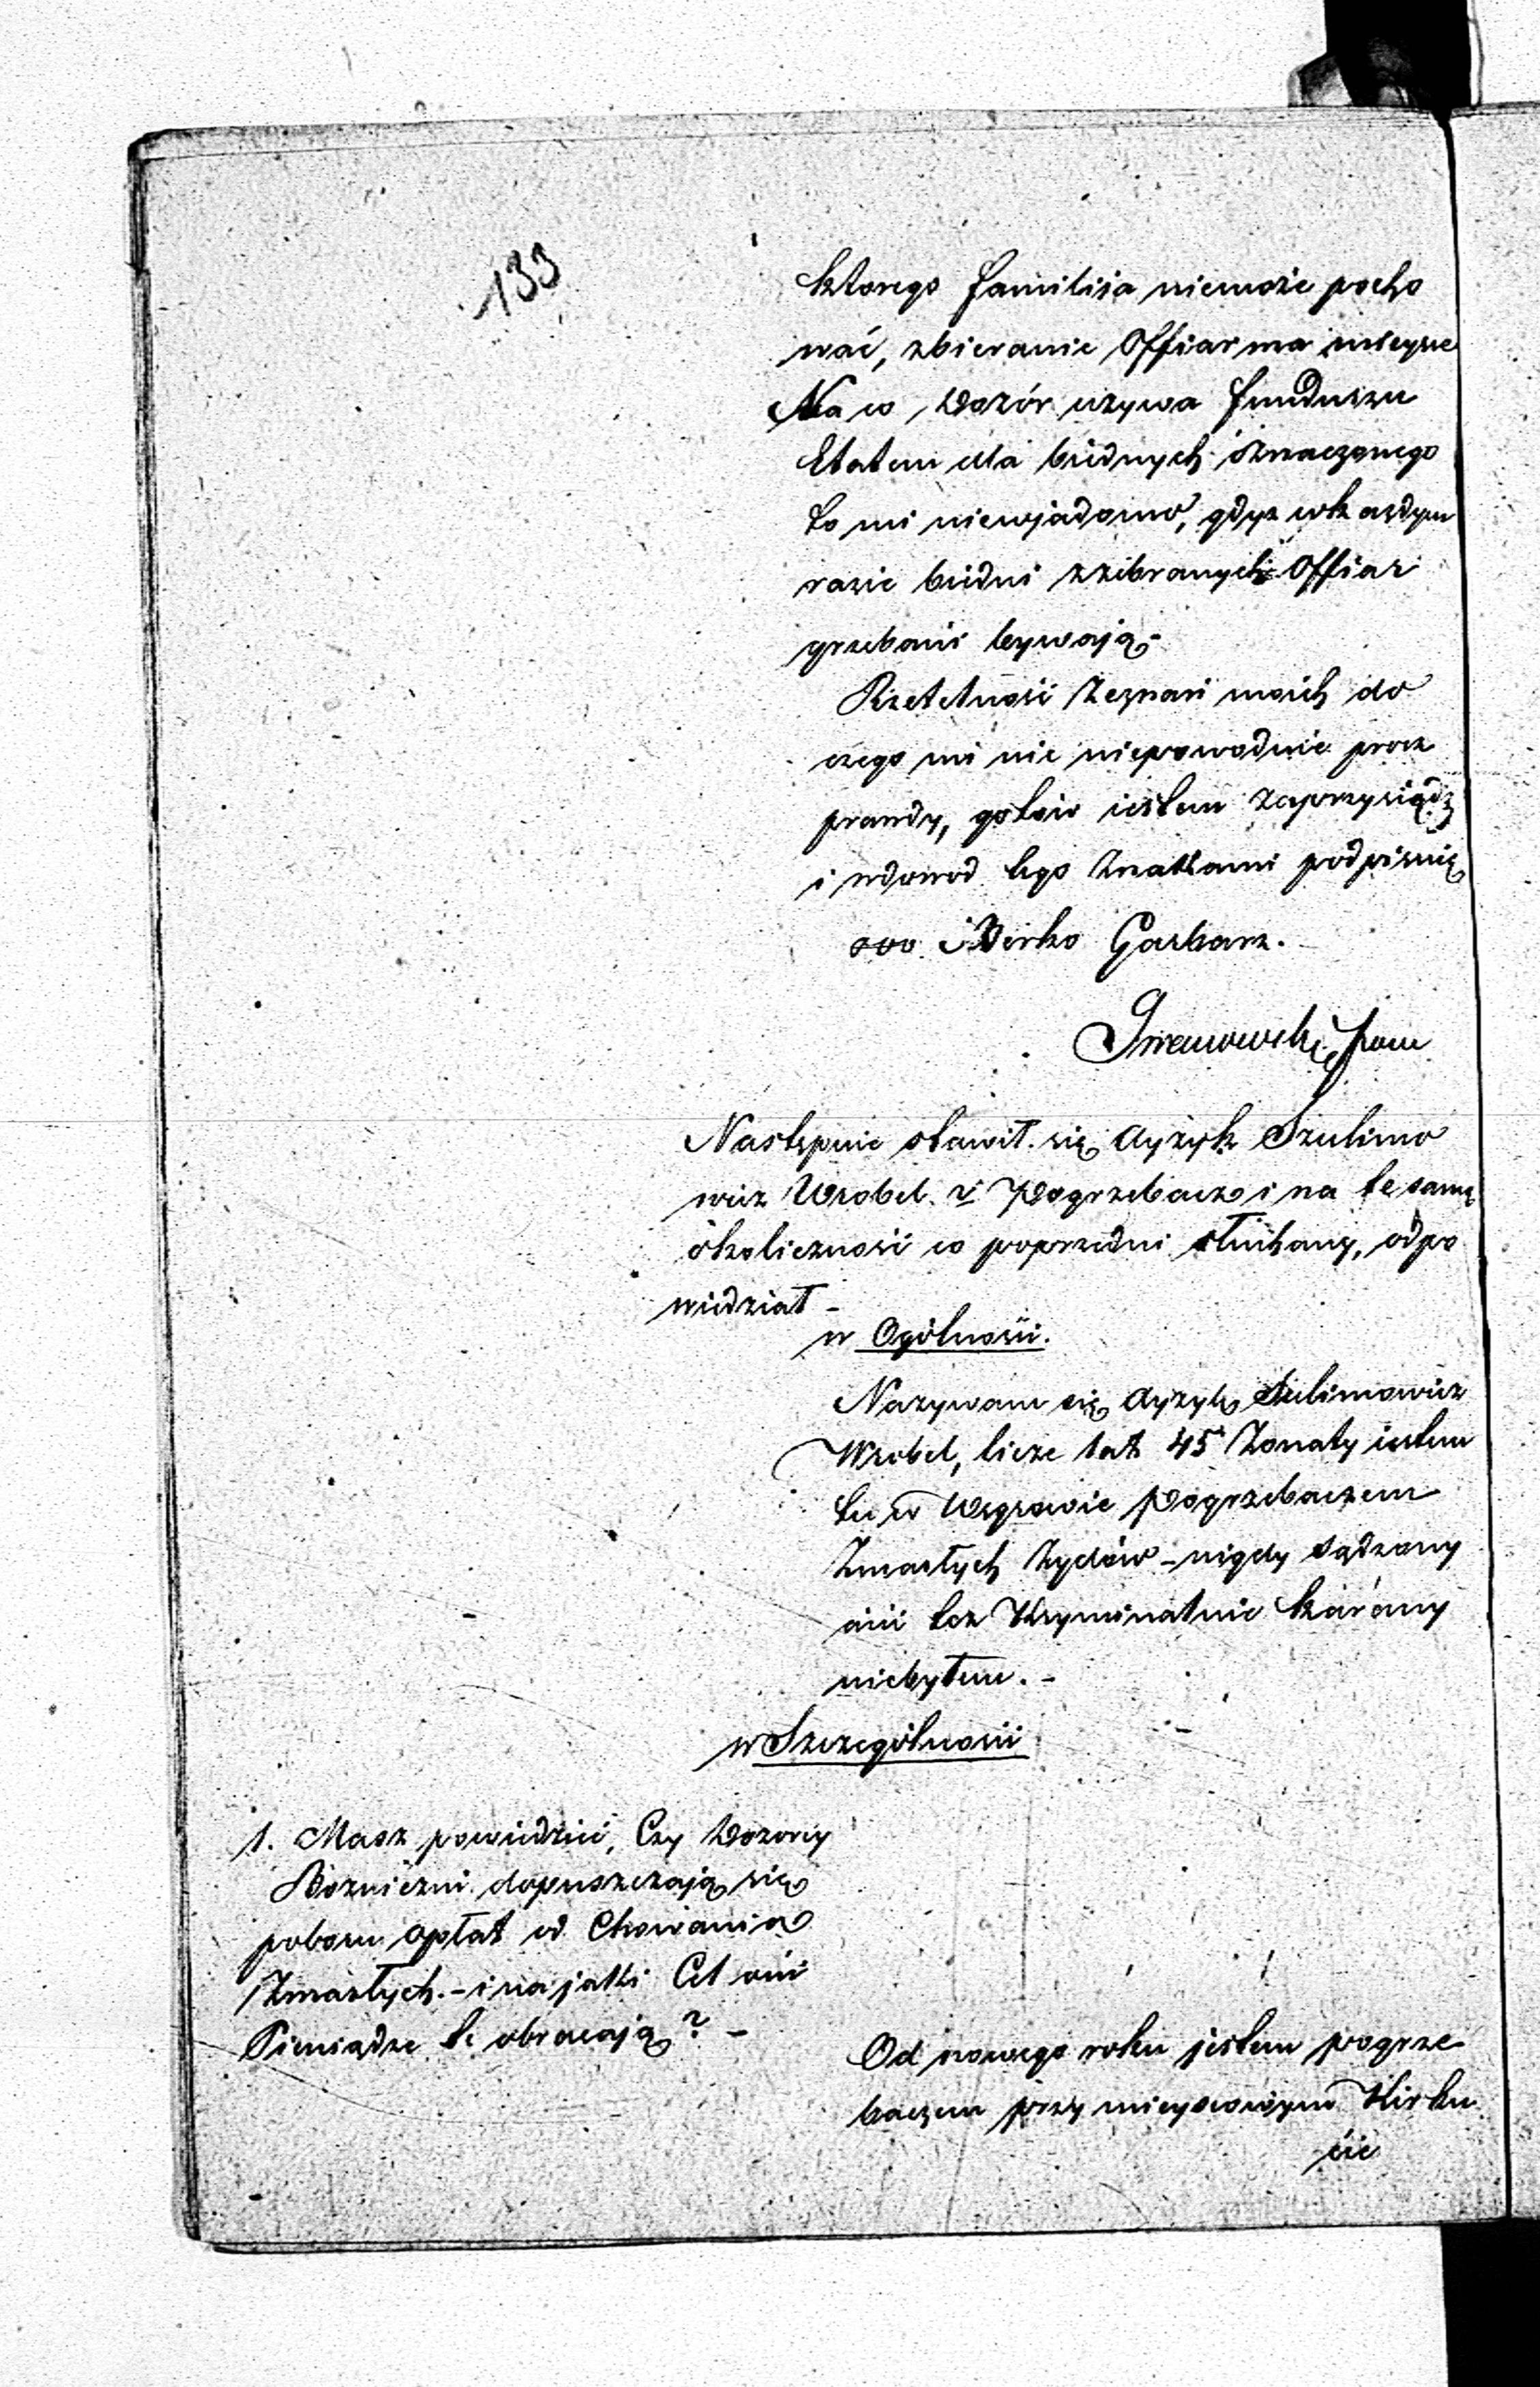 133
ktorego familiia niemoże pocho
wać, zbieranie Offiar ma mieysce
Na co Dozór używa funduszu
Etatem dla biednych oznaczonego
to mi niewjadomo, gdyz wkazdym
razie biedni zzebranych Offiar
grzebani bywają.-
Rzetelność zeznań moich do
czego mi nic niepowodnie procz
prawdy, gotów iestem zaprzysiądz
i wdowod tego znakami podpisuię
ooo Berko Garbarz.
Następnie stawił się Ayzyk Szulimo
wicz Wrobel v Pogrzebacz i na te samę
okoliczność co poprzedni słuchany, odpo
wiedział -
w Ogólności.
Nazywam się Ayzyk Szulimowicz
Wrobel, licze lat 45 Zonaty iestem
tu w Węgrowie Pogrzebaczem
Zmarłych Zydów - nigdy sądzony
ani tez Kryminalnie karany
niebyłem. -
w Szczególności
1. Masz powiedzieć, Czy Dozorcy
Bożniczni dopuszczają się
poboru opłat od Chowania
Zmarłych.- i na jaki Cel oni
Pieniądze te obracają? -
Od nowego roku jestem pogrze
baczem przy mieyscowym Kirku
cie